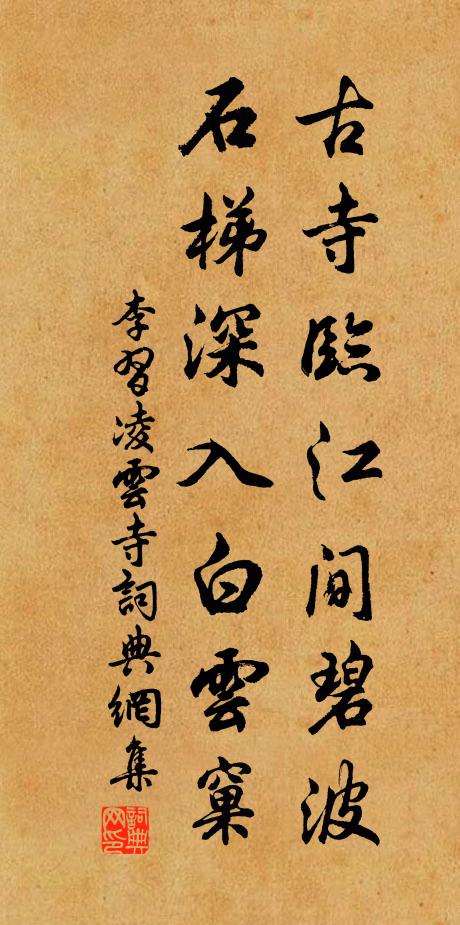 古寺臨江間碧波
石梯深入白雲窠
李習凌雲寺詞典網集
詞典網印